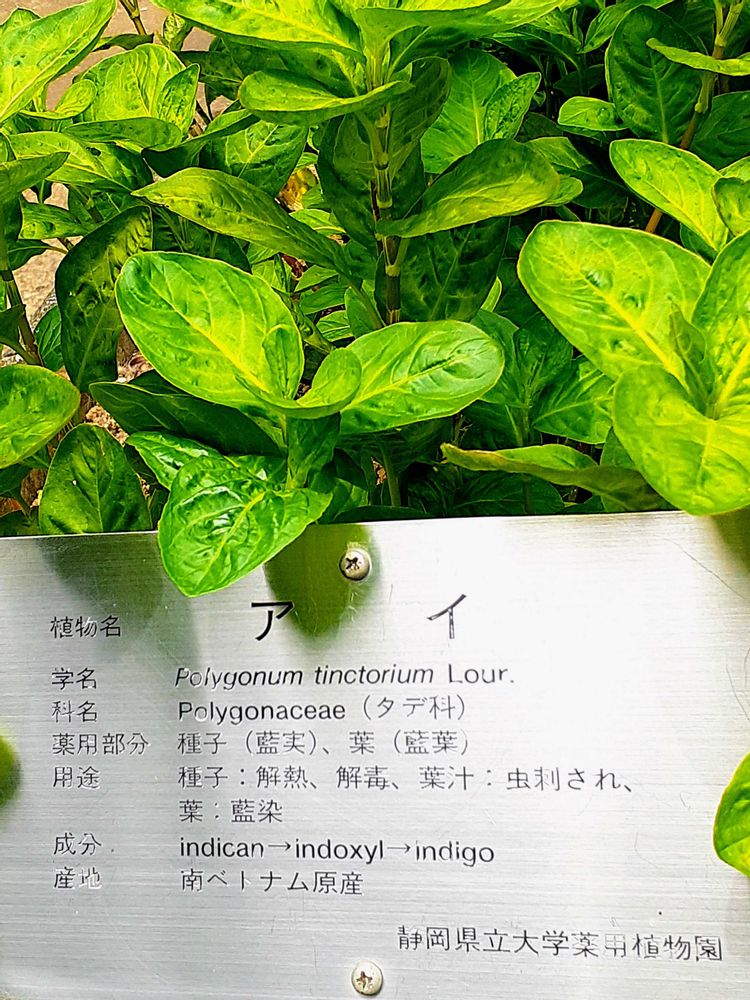 植物名 アイ
学名 Polygonum tinctorium Lour.
科名 Polygonaceae（タデ科）
薬用部分 種子（藍実）、葉（藍葉）
用途 種子：解熱、解毒、葉汁：虫刺され、
葉：藍染
成分 indican→indoxyl→indigo
産地 南ベトナム原産
静岡県立大学薬用植物園